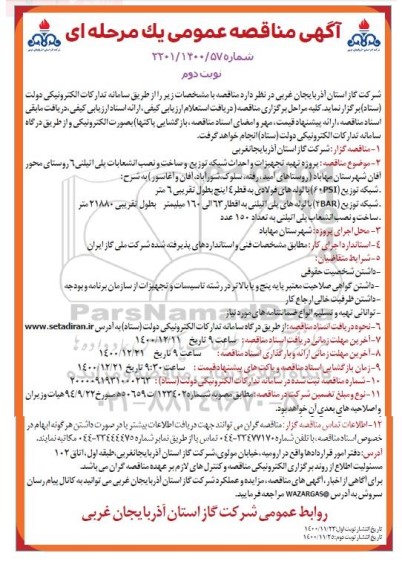 آگهی مناقصه عمومی یك مرحله ای
شماره ۲۲۰۱/۱۴۰۰/۵۷
نوبت دوم
شرکت گاز استان آذربایجان غربی در نظر دارد مناقصه با مشخصات زیر را از طریق سامانه تدارکات الکترونیکی دولت
(ستاد) برگزار نماید. کلیه مراحل برگزاری مناقصه (دریافت استعلام ارزیابی کیفی، ارائه اسناد ارزیابی کیفی، دریافت مابقی
اسناد مناقصه، ارائه پیشنهاد قیمت، مهر و امضای اسناد مناقصه، بازگشایی پاکتها) بصورت الکترونیکی و از طریق درگاه
سامانه تدارکات الکترونیکی دولت (ستاد) انجام خواهد گرفت.
۱- مناقصه گزار: شرکت گاز استان آذربایجانغربی
۲- موضوع مناقصه: پروژه تهیه تجهیزات و احداث شبکه توزیع و ساخت و نصب انشعابات پلی اتیلنی ۶ روستای محور
آفان شهرستان مهاباد (روستاهای امید، رفته، سلوک، شورآباد، آفان و آغانسور) به شرح:
. شبکه توزیع (۶۰PSI) با لوله های فولادی به قطر ۴ اینچ بطول تقریبی ۶ متر
. شبکه توزیع (۲BAR) با لوله های پلی اتیلنی به اقطار ۶۳ الی ۱۶۰ میلیمتر بطول تقریبی ۲۱۸۸۰ متر
. ساخت و نصب انشعاب پلی اتیلنی به تعداد ۱۵۰ عدد
۳- محل اجرای پروژه: شهرستان مهاباد
۴- استاندارد اجرای کار: مطابق مشخصات فنی و استانداردهای پذیرفته شده شرکت ملی گاز ایران
۵- شرایط متقاضیان:
- داشتن شخصیت حقوقی
- داشتن گواهی صلاحیت معتبر پایه پنج و یا بالاتر در رشته تاسیسات و تجهیزات از سازمان برنامه و بودجه
- داشتن ظرفیت خالی ارجاع کار
- توانائی تهیه و تسلیم انواع ضمانتنامه های مورد نیاز
۶- نحوه دریافت اسناد مناقصه: از طریق درگاه سامانه تدارکات الکترونیکی دولت (ستاد) به آدرس www.setadiran.ir
۷- آخرین مهلت زمانی دریافت اسناد مناقصه: ساعت ۹ تاریخ ۱۴۰۰/۱۲/۱۱
۸- آخرین مهلت زمانی ارائه و بارگذاری اسناد مناقصه: ساعت ۹ تاریخ ۱۴۰۰/۱۲/۲۱
۹- زمان بازگشایی اسناد مناقصه و پاکت های پیشنهاد قیمت: ساعت ۹:۳۰ تاریخ ۱۴۰۰/۱۲/۲۱
۱۰- شماره مناقصه ثبت شده در سامانه تدارکات الکترونیکی دولت (ستاد):
۱۱- نوع و مبلغ تضمین شرکت در مناقصه: مطابق مصوبه شماره ۱۲۳۴۰۲/ت۵۰۶۵۹ه مورخ ۹۴/۹/۲۲ هیات وزیران
و اصلاحیه های بعدی آن خواهد بود.
۱۲- اطلاعات تماس مناقصه گزار: مناقصه گران می توانند جهت دریافت اطلاعات بیشتر یا در صورت داشتن هر گونه ابهام در
خصوص اسناد مناقصه، با تلفن شماره ۳۳۴۷۷۱۷۰-۰۴۴ تماس یا از طریق نمابر شماره ۳۳۴۴۴۴۷۵-۰۴۴ مکاتبه نمایند.
آدرس: دفتر امور قراردادها واقع در ارومیه، خیابان مولوی، شرکت گاز استان آذربایجانغربی، طبقه اول، اتاق ۱۰۲
مسئولیت اطلاع از روند برگزاری الکترونیکی مناقصه و کنترل های لازم بر عهده مناقصه گران می باشد.
برای آگاهی از اخبار، آگهی های مناقصه، مزایده و عملکرد شرکت گاز استان آذربایجان غربی می توانید به کانال پیام رسان
سروش به آدرس @WAZARGAS مراجعه فرمایید.
روابط عمومی شرکت گاز استان آذربایجان غربی
تاریخ انتشار نوبت اول: ۱۴۰۰/۱۱/۲۳
تاریخ انتشار نوبت دوم: ۱۴۰۰/۱۱/۲۵